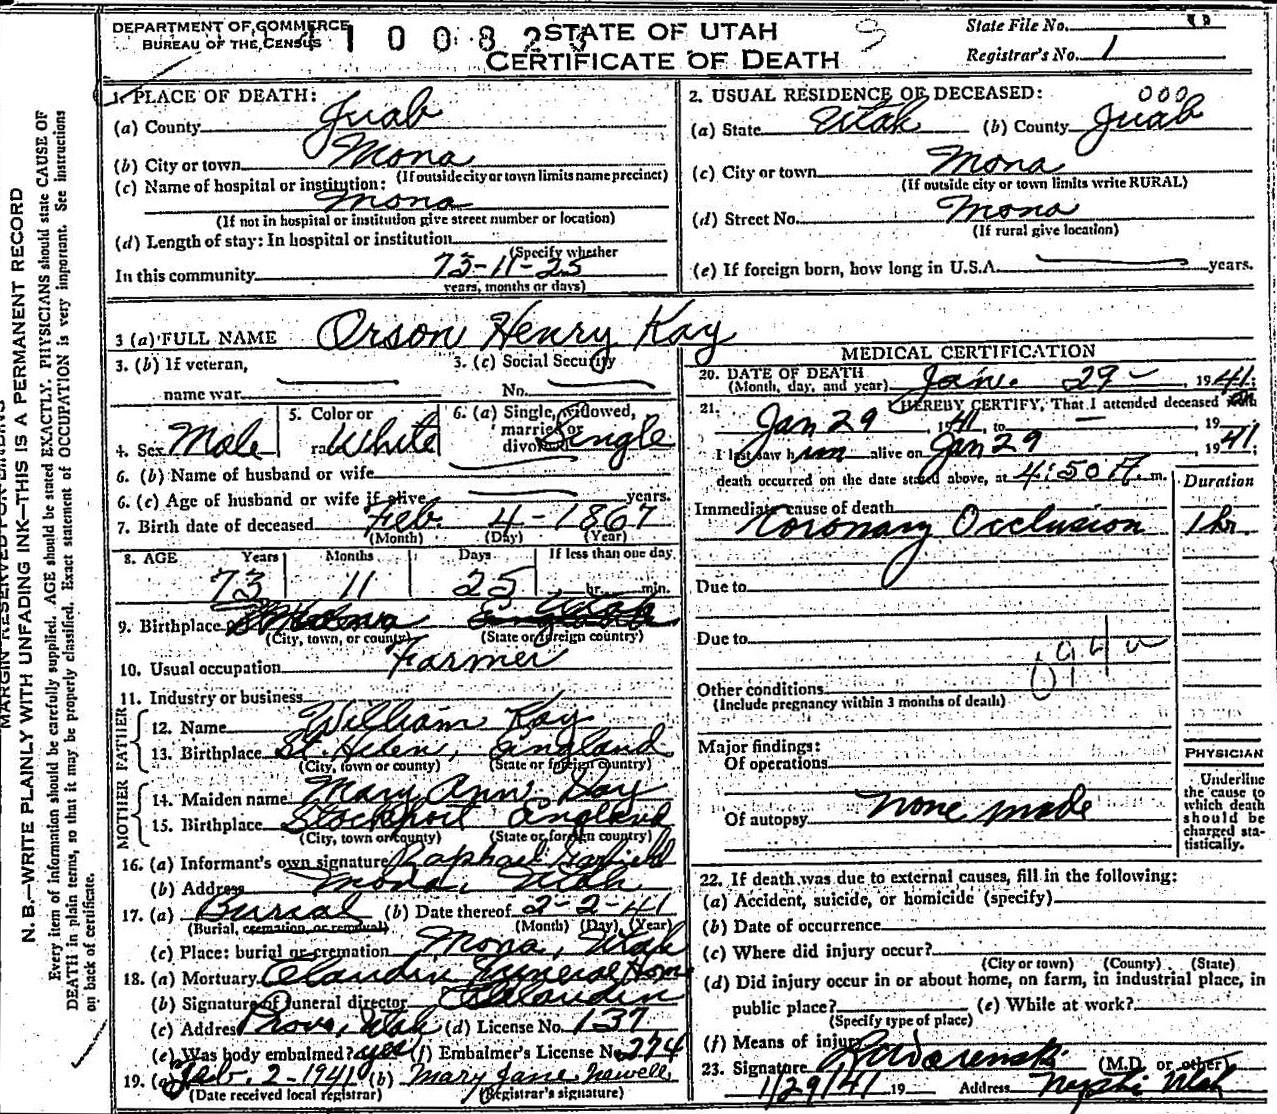 DEPARTMENT OF COMMERCE
BUREAU OF THE CENSUS
STATE OF UTAH
CERTIFICATE OF DEATH
State File No.
Registrar's No. 1
1. PLACE OF DEATH:
(a) County Juab
(b) City or town Mona
(If outside city or town limits name precinct)
(c) Name of hospital or institution:
Mona
(If not in hospital or institution give street number or location)
(d) Length of stay: In hospital or institution
(Specify whether
In this community 73-11-25
years, months or days)
2. USUAL RESIDENCE OF DECEASED: 000
(a) State Utah (b) County Juab
(c) City or town Mona
(If outside city or town limits write RURAL)
(d) Street No. Mona
(If rural give location)
(e) If foreign born, how long in U.S.A. years.
3 (a) FULL NAME Orson Henry Kay
3. (b) If veteran,
name war.
3. (c) Social Security
No.
4. Sex Male
5. Color or
race White
6. (a) Single, widowed,
married or
divorced Single
6. (b) Name of husband or wife
6. (c) Age of husband or wife if alive years.
7. Birth date of deceased Feb. 4 - 1867
(Month) (Day) (Year)
8. AGE Years Months Days If less than one day
73 11 25 hr. min.
9. Birthplace Mona Utah
(City, town, or county) (State or foreign country)
10. Usual occupation Farmer
11. Industry or business
FATHER
12. Name William Kay
13. Birthplace St. Helen, England
(City, town or county) (State or foreign country)
MOTHER
14. Maiden name Mary Ann Day
15. Birthplace Stockport England
(City, town or county) (State or foreign country)
16. (a) Informant's own signature Raphael Garfield
(b) Address Mona, Utah
17. (a) Burial (b) Date thereof 2-2-41
(Burial, cremation, or removal) (Month) (Day) (Year)
(c) Place: burial or cremation Mona, Utah
18. (a) Mortuary Claudin Funeral Home
(b) Signature of funeral director Claudin
(c) Address Provo, Utah (d) License No. 137
(e) Was body embalmed? yes (f) Embalmer's License No. 274
19. (a) Feb. 2-1941 (b) Mary Jane Newell
(Date received local registrar) (Registrar's signature)
MEDICAL CERTIFICATION
20. DATE OF DEATH
(Month, day, and year) Jan. 29 - , 1941;
21. I HEREBY CERTIFY, That I attended deceased
Jan 29, 1941, to — , 19
I last saw him alive on Jan 29 1941;
death occurred on the date stated above, at 4:50 A. m.
Duration
Immediate cause of death
Coronary Occlusion 1 hr
Due to
Due to
094a
Other conditions
(Include pregnancy within 3 months of death)
Major findings:
Of operations
Of autopsy none made
PHYSICIAN
Underline
the cause to
which death
should be
charged sta-
tistically.
22. If death was due to external causes, fill in the following:
(a) Accident, suicide, or homicide (specify)
(b) Date of occurrence
(c) Where did injury occur?
(City or town) (County) (State)
(d) Did injury occur in or about home, on farm, in industrial place, in
public place? (e) While at work?
(Specify type of place)
(f) Means of injury
23. Signature (M.D. or other)
1/29/41 19 Address Nephi Utah
N. B.—WRITE PLAINLY WITH UNFADING INK—THIS IS A PERMANENT RECORD
Every item of information should be carefully supplied. AGE should be stated EXACTLY. PHYSICIANS should state CAUSE OF
DEATH in plain terms, so that it may be properly classified. Exact statement of OCCUPATION is very important. See instructions
on back of certificate.